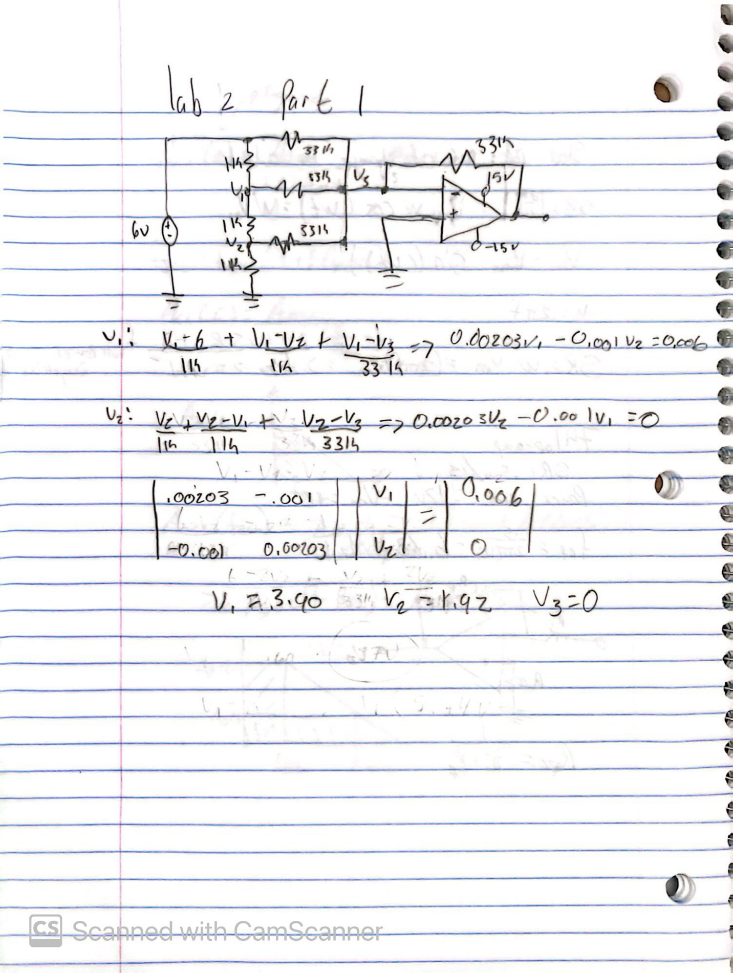 lab 2 Part 1
33k
33k
1k
33k
V3
15V
V1
6V
1k
33k
V2
-15V
1k
V1: V1-6/1k + V1-V2/1k + V1-V3/33k => 0.00203V1 - 0.001V2 = 0.006
V2: V2/1k + V2-V1/1k + V2-V3/33k => 0.00203V2 - 0.001V1 = 0
.00203 -.001 V1 = 0.006
-0.001 0.00203 V2 0
V1 = 3.90 V2 = 1.92 V3=0
CS Scanned with CamScanner